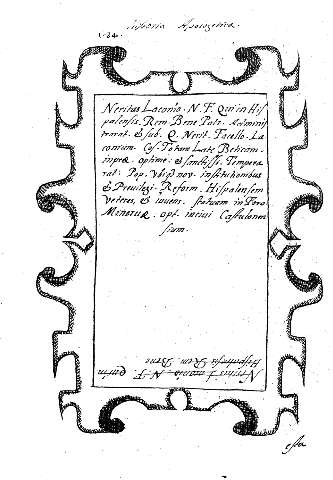 Historia Apologetica
134.
Neritus Laconio. N. F. Qui in His
palensis. Rem. Bene Pate. Adminis
trarat. & sub. Q. Nerit. Facello. La
conium. Cos. Totum Late Beticam.
inpræ. optime: & sanctiss. Tempera
rat. Pop. nov. institutionibus
& Previlegi. Reform. Hispalensem
veteres, & iuuen. statuam in Foro
Mineruæ. opt. inciui Castulonen
sium.
Neritus Laconio N. F. Qui in
Hispalensis Rem. Bene
esta